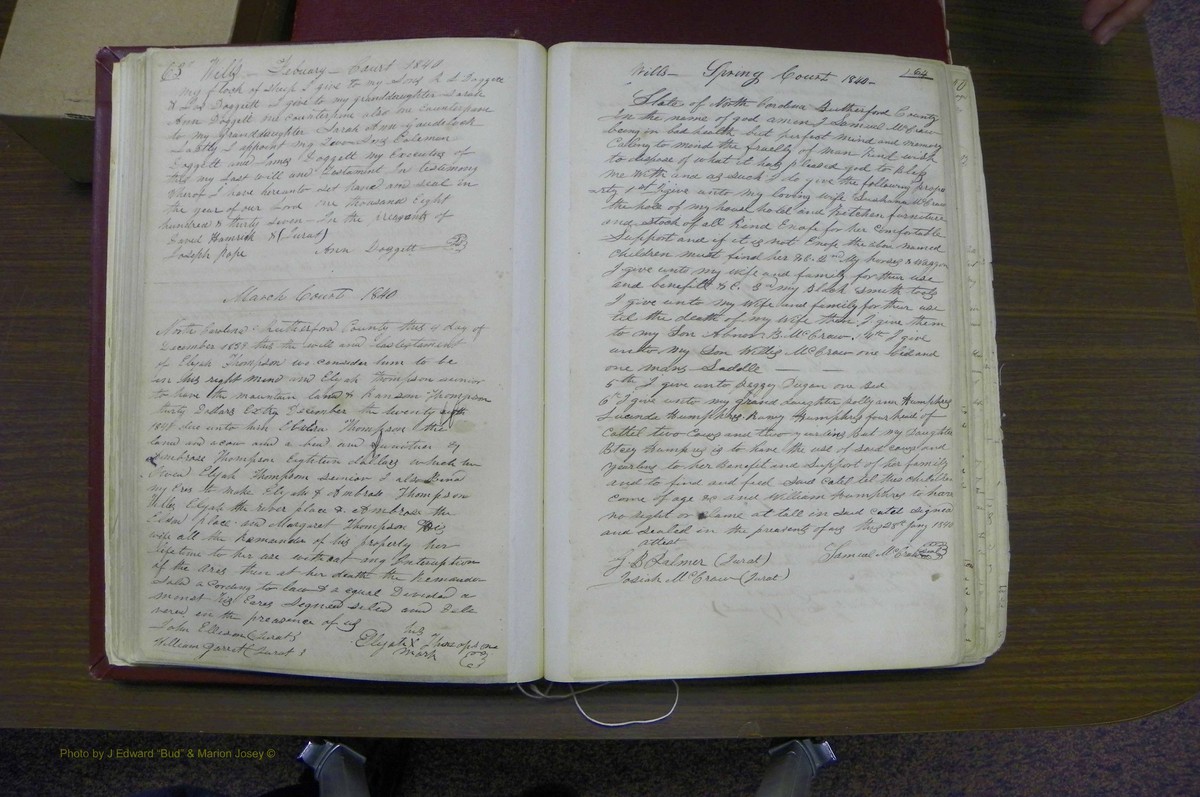 63 Wills - Febuary - Court 1840
my flock of Sheep I give to my Sons R L Doggett
& Doggett I give to my granddaughter Sarah
Ann Doggett one counterpin also one Counterpane
to my Granddaughter Sarah Ann Gaudelock
Lastly I appoint my Two Sons Coleman
Doggett and James Doggett my Executors of
this my Last will and Testament In testimony
wherof I have hereunto Set hand and seal in
the year of our Lord one thousand Eight
hundred & thirty Seven - In the presents of
David Hamrick (Jurat)
Joseph Pope Ann Doggett
March Court 1840
North Carolina Rutherford County this day of
December 1839 this the will and Lastestament
of Elijah Thompson we consider him to be
in his right mind and Elijah Thompson senior
to have the mountain land & Ransom Thompson
thirty Dollars Extry December the twenty
184 due unto him Thompson the
land and a cow and a bed and furniture
Ambrose Thompson Eighteen dollars which he
owed Elijah Thompson senior I also Bind
my to make Elijah & Ambrose Thompson
titles Elijah the river place & Ambrose the
place and Margaret Thompson His
wife all the Remainder of his property her
lifetime to her use without any Interuption
of the then at her death the Remainder
Sold a cording to law & a equal Divided a
monst His Eares Segned seled and Dele
vered in the preasence of us
John Ellison (Jurat) his
William Garrett (Jurat) Elijah X Thompson
mark
Wills - Spring Court 1840 - 164
State of North Carolina Rutherford County
In the name of god amen I Samuel McCraw
being in bad health but perfect mind and memory
Calling to mind the frailty of man Kind wish
to dispose of what it has pleased god to Bless
me with and as such I do give the following prope
arty 1st I give unto my loving wife Sushana McCraw
the hole of my house hold and kitchen furniture
and stock of all Kand Enofe for her Comfortable
Support and if it is not Enofe the above named
children must find her &C. 2nd My horses & waggon
I give unto my wife and family for their use
and benefitt &C. 3rd my Black Smith tools
I give unto my Wife and family for their use
til the death of my wife then I give them
to my Son Abnor B. McCraw. 4th I give
unto my Son Willis McCraw one bed and
one mans Saddle
5th I give unto Peggy Dugan one Bed
6th I give unto my grand daughter polly ann Humphres
Lucinda Humphres Humphres four head of
Cattel two Cows and two yearlins But my Daughter
Betsy Humphres is to have the use of said cows and
yearlins to her Benefit and Support of her family
and to find and feed Said Catel tel thes children
come of age &c and William Humphres to have
no right or Clame at tall in Sad catel Signed
and Sealed in the presents of us this 28th Jany 1840
attest
J B Palmer (Jurat) Samuel McCraw (seal)
Josiah McCraw (Jurat)
Photo by J Edward "Bud" & Marion Josey ©